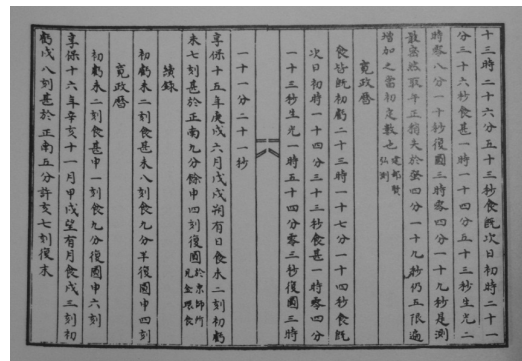 十三時二十六分五十三秒食既次日初時二十一
分三十六秒食甚一時一十四分五十三秒生光二
時零八分一十秒復圓三時零四分一十九秒是測
最無然取午正稍失於癸四分一十九秒仍五限遞
増加之當初定數也
寛政暦
食皆既初虧二十三時一十七分一十四秒食既
次日初時一十四分三十三秒食甚一時零四分
一十三秒生光一時五十四分零三秒復圓三時
一十一分二十一秒
享保十五年庚戌六月戊戌朔有日食未二刻初虧
未七刻甚於正南九分餘申四刻復圓
續錄
初虧未二刻食甚未八刻食九分半復圓申四刻
寛政暦
初虧未二刻食甚申一刻食九分復圓申六刻
享保十六年辛亥十一月甲戌望有月食戌三刻初
虧戌八刻甚於正南五分許亥七刻復末